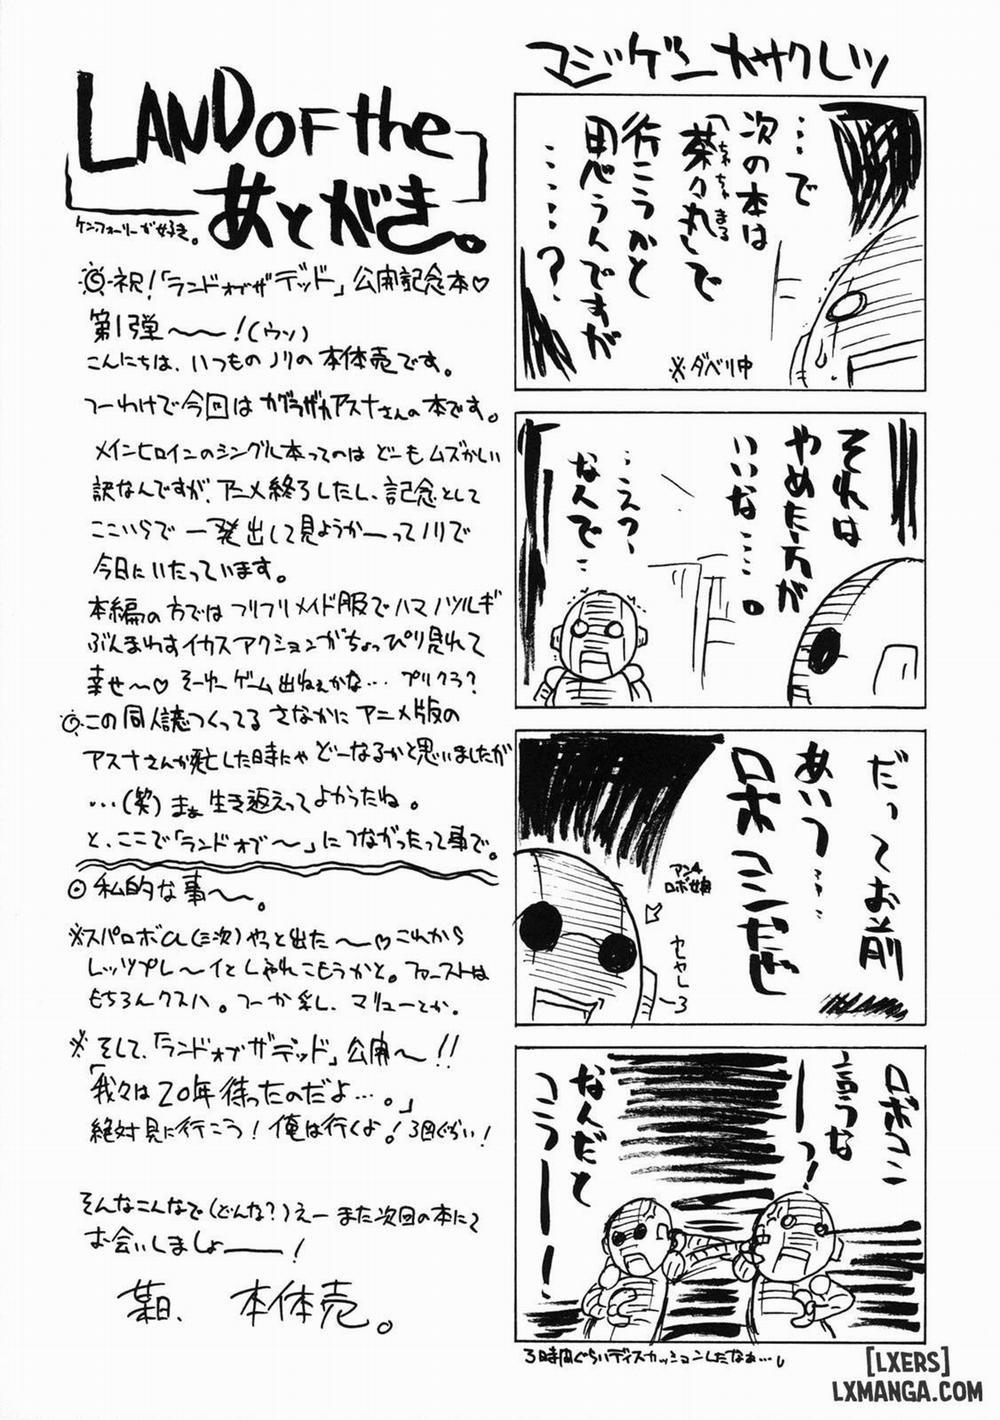 マジゲンカサクレツ
…で
次の本は
「茶々丸」で
ちゃちゃまる
行こうかと
思うんですが
……?
※ダベリ中
それは
やめた方が
いいな…。
…えっ、
なんで…
だってお前
あいつ…
ロボコンだぜ
アンチ
ロボ娘
ロボコン
言うな
ーっ!
なんだと
コラーー!
3時間ぐらいディスカッションしたなぁ…。
LAND OF the
あとがき。
ケン・フォーリーが好き。
◎祝!「ランドオブザデッド」公開記念本♡
第1弾〜〜!(ウソ)
こんにちは、いつものノリの本体売です。
つーわけで今回はカグラザカアスナさんの本です。
メインヒロインのシングル本ってのはどーもムズかしい
訳なんですが、アニメ終了したし、記念として
ここいらで一発出して見ようかーってノリで
今日にいたっています。
本編の方ではフリフリメイド服でハマノツルギ
ぶんまわすイカスアクションがちょっぴり見れて
幸せ〜♡ そーゆーゲーム出ねぇかな… プリクラ?
◎この同人誌つくってるさなかにアニメ版の
アスナさんが死亡した時にゃどーなるかと思いましたが
…(笑)まぁ生き返えってよかったね。
と、ここで「ランドオブ〜」につながったって事で。
◎私的な事〜。
※スパロボα(三次)やっと出た〜♡これから
レッツプレ〜イとしゃれこもうかと。ファーストは
もちろんクスハ。つーか乳し、マリューとか。
※そして、「ランドオブザデッド」公開〜!!
「我々は20年待ったのだよ…。」
絶対見に行こう!俺は行くよ!3回ぐらい!
そんなこんなで(どんな?)えーまた次回の本にて
お会いしましょーー!
某日、 本体売。
[LXERS]
LXMANGA.COM